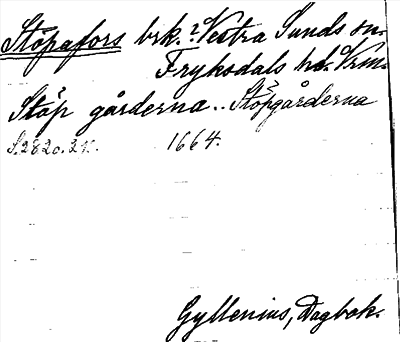 Stöpafors brk.? Västra Sunds sn.
Fryksdals hd. Vrm.
Stöp gårderna.. Stöpgårderna
S. 282 o. 21.
1664.
Gyllenius, Dagbok.